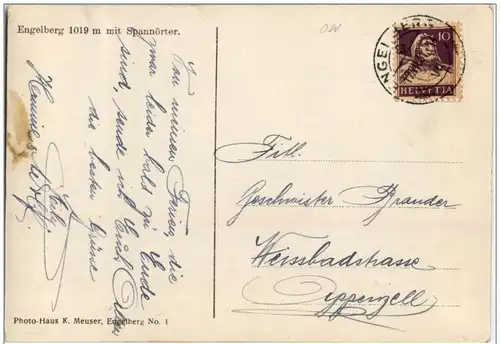 Engelberg 1019 m mit Spannörter.
10
HELVETIA
Von meinen Ferien, die
zwar leider bald zu Ende
sind, sende ich Euch Allen
die besten Grüsse
Titl.
Geschwister Brander
Weissbadstrasse
Appenzell
Photo-Haus K. Meuser, Engelberg No. 1